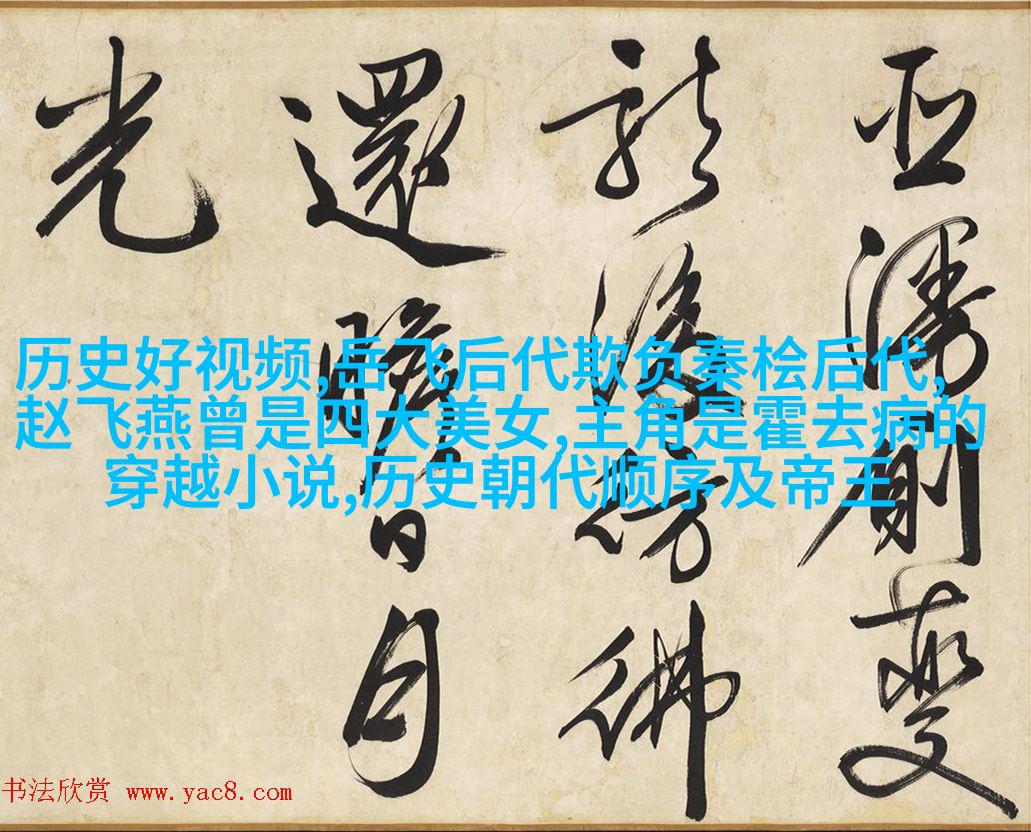 历史好视频,岳飞后代欺负秦桧后代,
赵飞燕曾是四大美女,主角是霍去病的
穿越小说,历史朝代顺序及帝王
變
彷彿
還瞻日月
光
书法欣赏 www.yac8.com